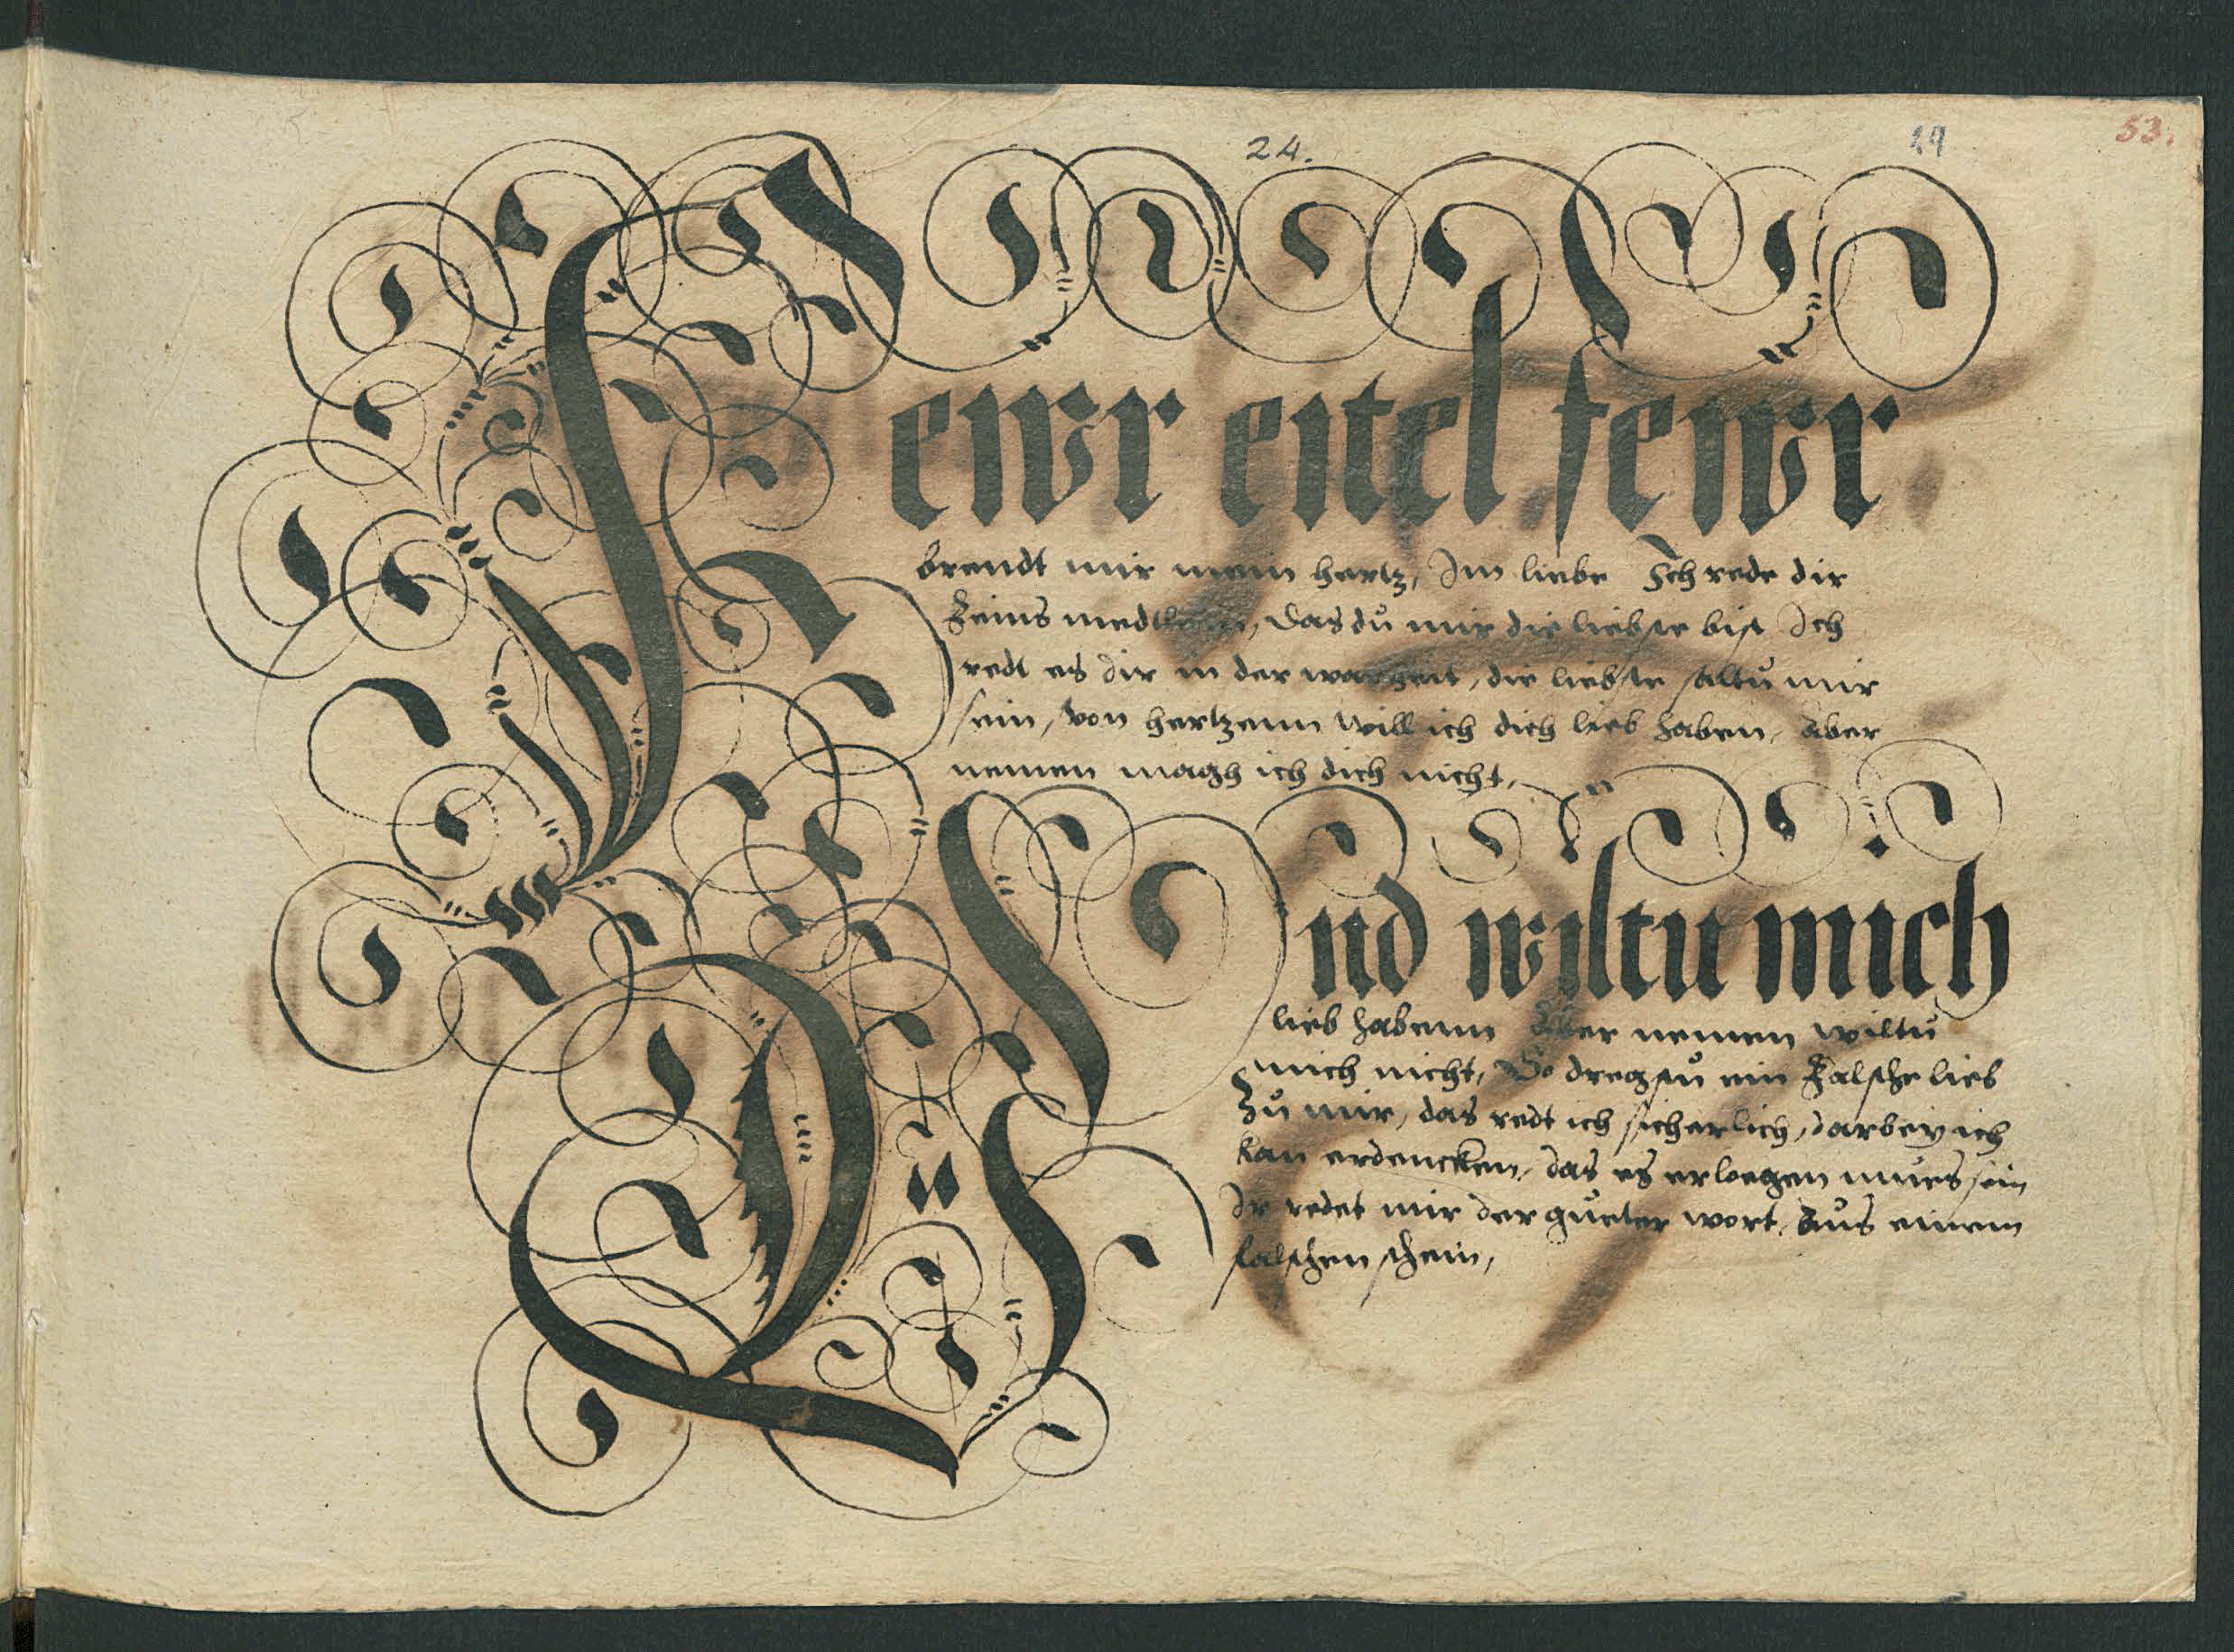 24.
29
53.
Fewr eitel fewr
brendt mir mein hertz, Im liebe Ich rede dir
feins medtlein, Das du mir die liebste bist Ich
redt es dir in der warheit, die liebste saltu mir
sein, Von hertzenn will ich dich lieb haben, Aber
nemen magh ich dich nicht,
Vnd wiltu mich
lieb habenn Aber nemen wiltu
mich nicht, So dregstu ein Falsche lieb
Zu mir, das redt ich sicherlich, darbey ich
kan erdencken, das es erloegen mues sein
Ir redet mir der gueter wort, Aus einem
falschen schein,